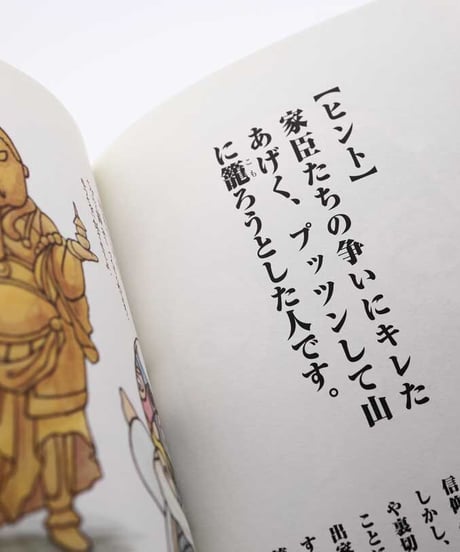 【ヒント】
家臣たちの争いにキレた
あげく、プッツンして山
に籠ろうとした人です。
こも
信仰
しかし、
や裏切
ことに
出家
す